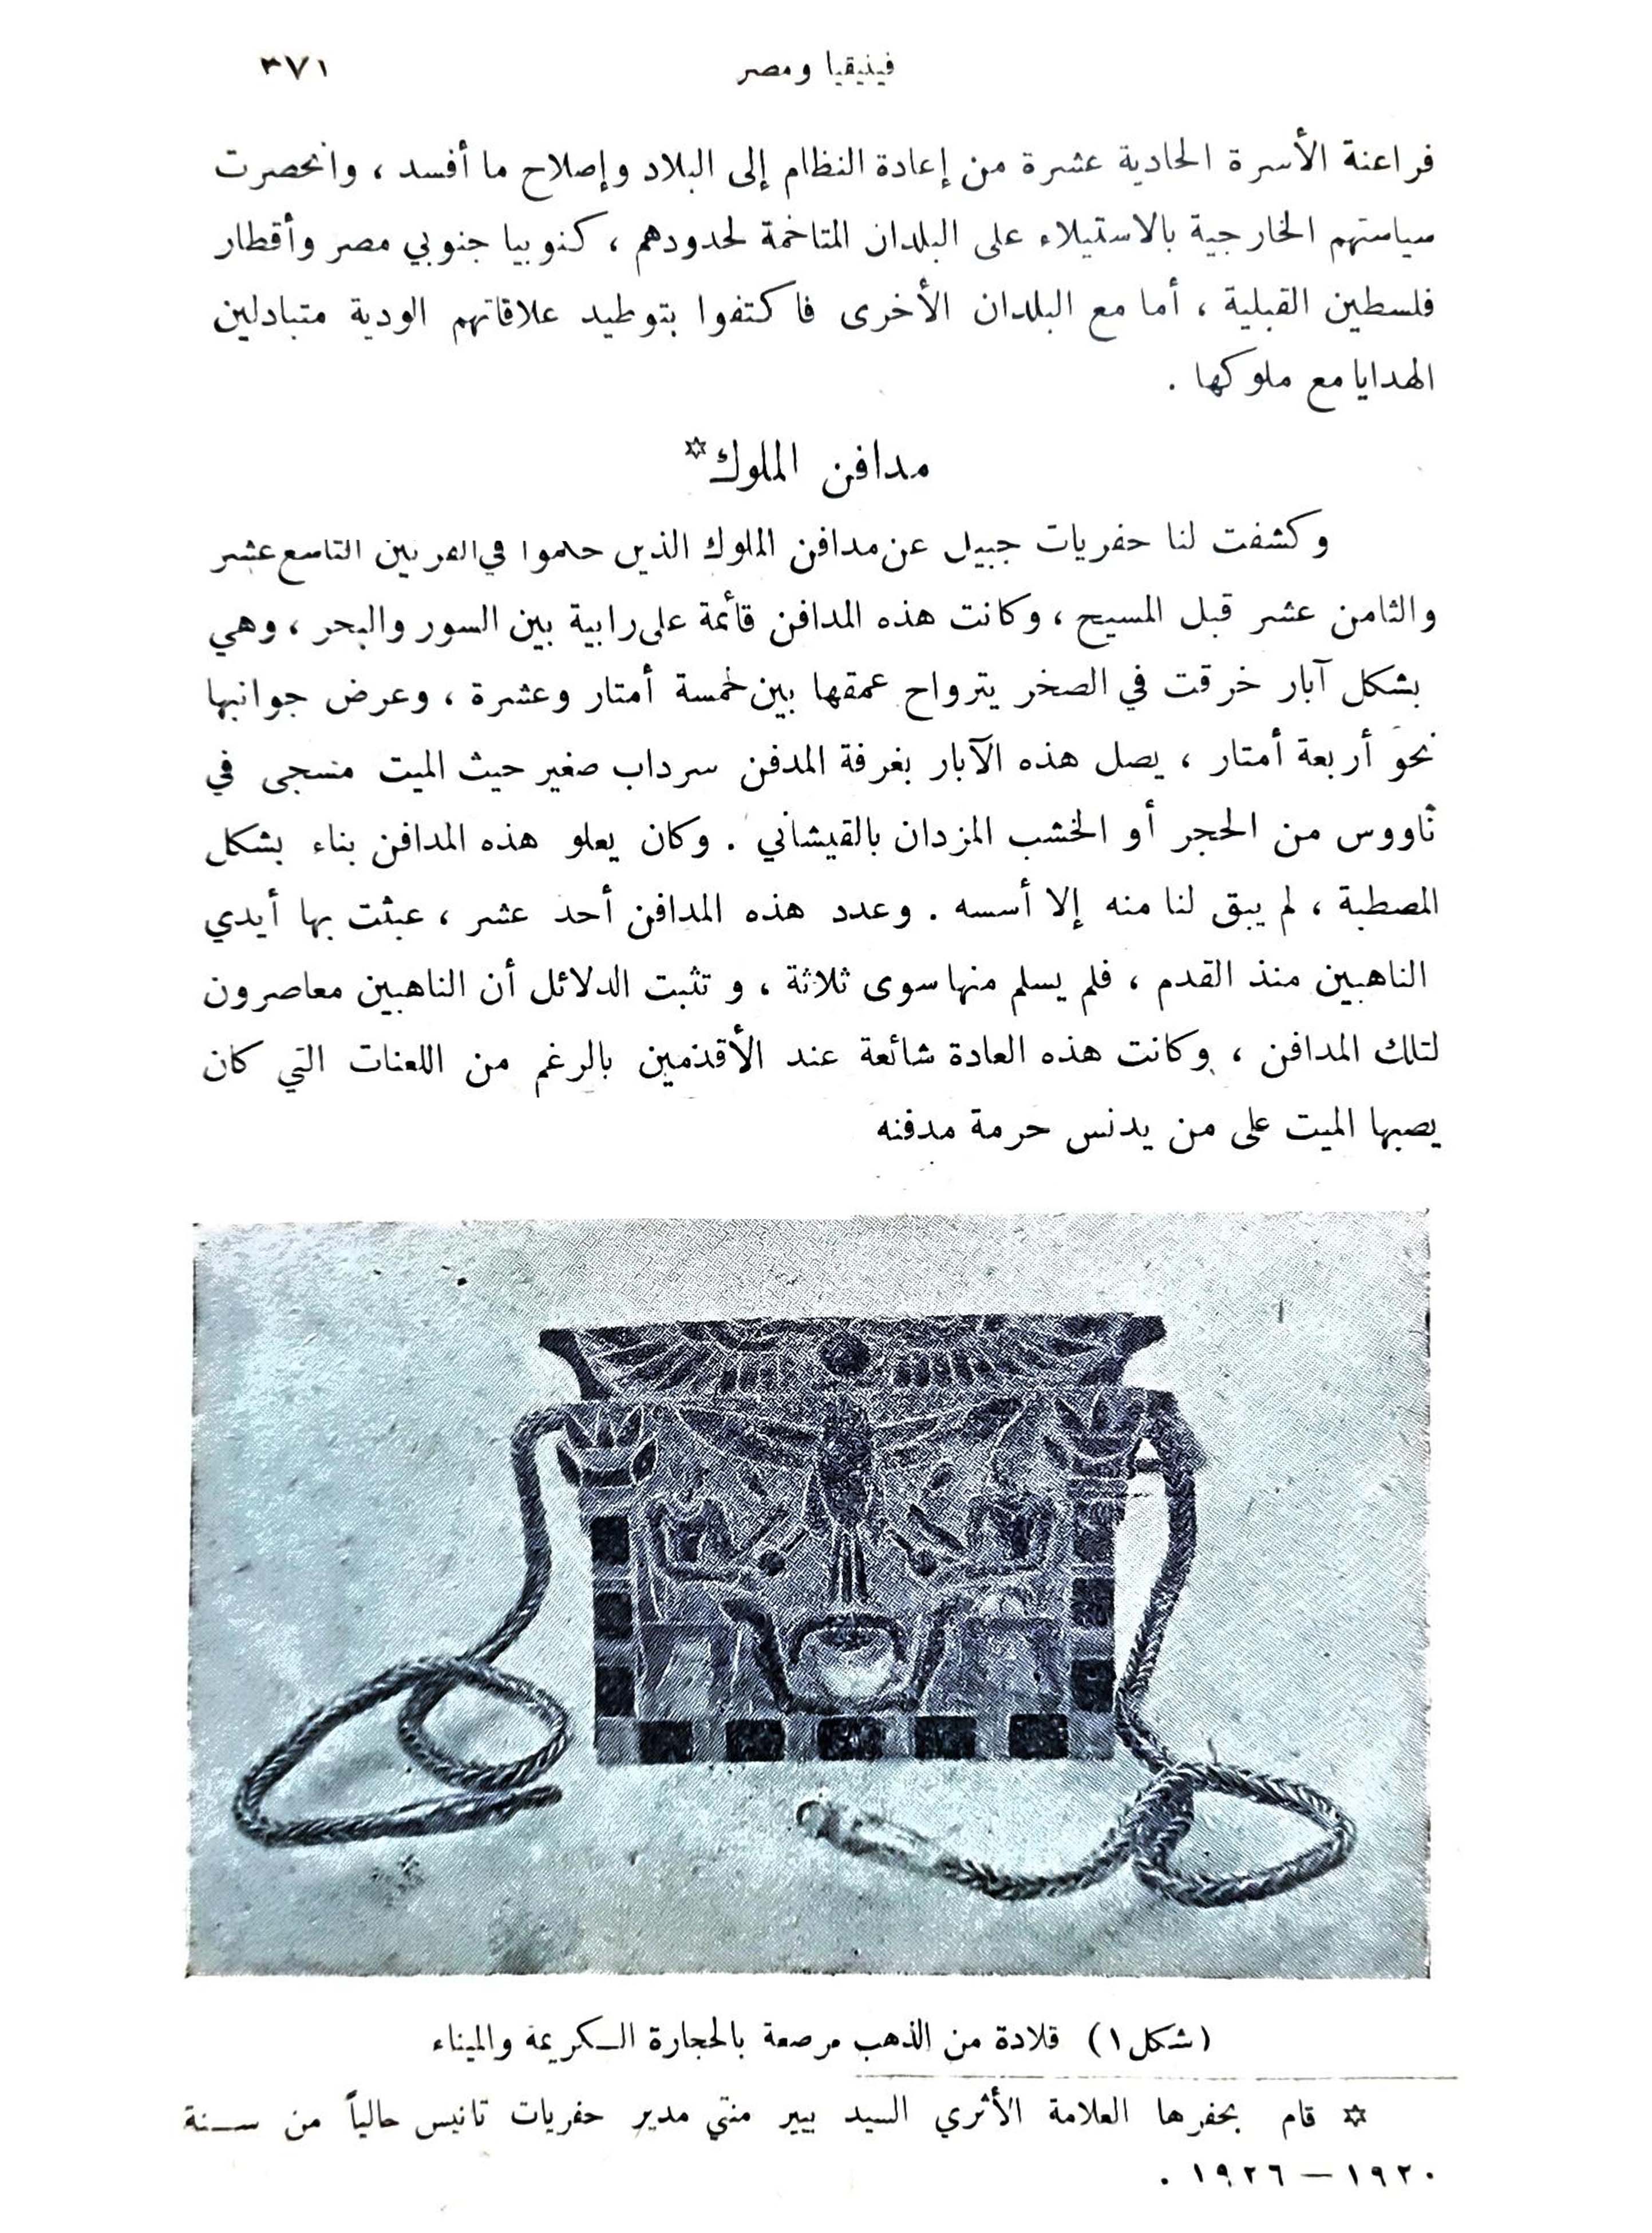 فينيقيا ومصر
٣٧١
فراعنة الأسرة الحادية عشرة من إعادة النظام إلى البلاد وإصلاح ما أفسد ، وانحصرت
سياستهم الخارجية بالاستيلاء على البلدان المتاخمة لحدودهم ، كنوبيا جنوبي مصر وأقطار
فلسطين القبلية ، أما مع البلدان الأخرى فاكتفوا بتوطيد علاقاتهم الودية متبادلين
الهدايا مع ملوكها .
مدافن الملوك*
وكشفت لنا حفريات جبيل عن مدافن الملوك الذين حكموا في القرنين التاسع عشر
والثامن عشر قبل المسيح ، وكانت هذه المدافن قائمة على رابية بين السور والبحر ، وهي
بشكل آبار خرقت في الصخر يترواح عمقها بين خمسة أمتار وعشرة ، وعرض جوانبها
نحو أربعة أمتار ، يصل هذه الآبار بغرفة المدفن سرداب صغير حيث الميت مسجى في
ناووس من الحجر أو الخشب المزدان بالقيشاني . وكان يعلو هذه المدافن بناء بشكل
المصطبة ، لم يبق لنا منه إلا أسسه . وعدد هذه المدافن أحد عشر ، عبثت بها أيدي
الناهبين منذ القدم ، فلم يسلم منها سوى ثلاثة ، و تثبت الدلائل أن الناهبين معاصرون
لتلك المدافن ، وكانت هذه العادة شائعة عند الأقدمين بالرغم من اللعنات التي كان
يصبها الميت على من يدنس حرمة مدفنه
(شكل ١) قلادة من الذهب مرصعة بالحجارة الكريمة والميناء
* قام بحفرها العلامة الأثري السيد بيير منتي مدير حفريات تانيس حالياً من سنة
١٩٢٠ – ١٩٢٦ .